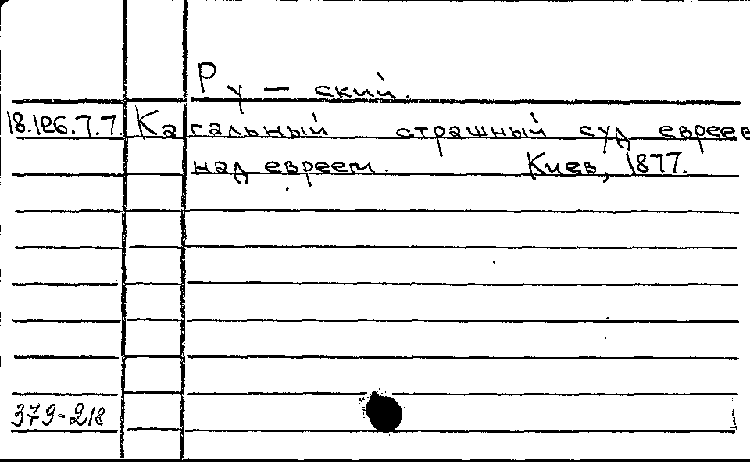 Ру — ский.
18.126.7.7. Кагальный страшный суд евреев
над евреем. Киев, 1877.
379-218